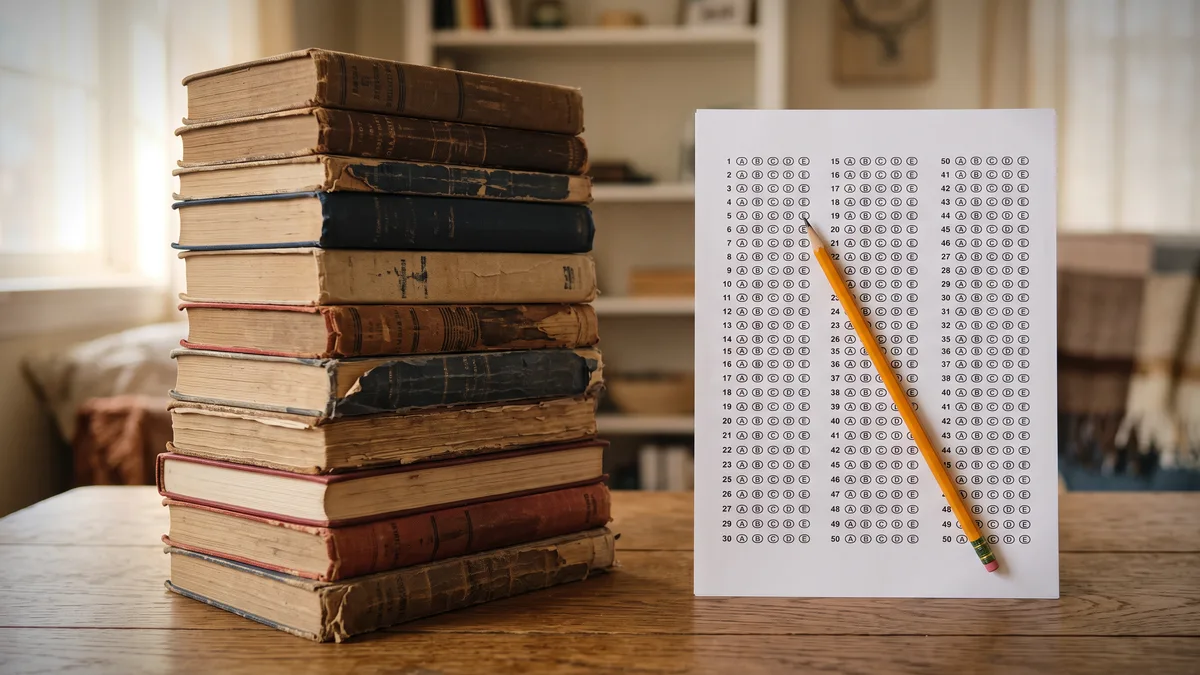 1 A B C D E 15 A B C D E 50 A B C D E
2 A B C D E 16 A B C D E 41 A B C D E
3 A B C D E 17 A B C D E 42 A B C D E
4 A B C D E 18 A B C D E 43 A B C D E
5 A B C D 19 A B C D E 44 A B C D E
6 A B C D E 20 A B C D E 45 A B C D E
7 A B C D E 21 A B C D E 46 A B C D E
8 A B C D E 22 A B C D E 27 A B C D E
9 A B C D E B C D E 28 A B C D E
10 A B C D E B C D E 29 A B C D E
11 A B C D E B C D E 30 A B C D E
12 A B C D E 24 B C D E 31 A B C D E
13 A B C D E 23 A C D E 32 A B C D E
14 A B C D E 26 A C D E 35 A B C D E
15 A B C D E 35 A B D E 36 A B C D E
16 A B C D E 36 A B D E 37 A B C D E
17 A B C D E 37 A B C E 38 A B C D E
18 A B C D E 38 A B C E 40 A B C D E
19 A B C D E 39 A B C D 41 A B C D E
20 A B C D E 40 A B C D 42 A B C D E
21 A B C D E 41 A B C D E 43 A B C D E
22 A B C D E 42 A B C D E 44 A B C D E
23 A B C D E 45 A B C D E A B C D E
25 A B C D E 46 A B C D E A B C D E
26 A B C D E 47 A B C D E B C D E
27 A B C D E 48 A B C D E 48 B C D E
29 A B C D E 49 A B C D E 49 C D E
30 A B C D E 50 A B C D E 50 A C D E